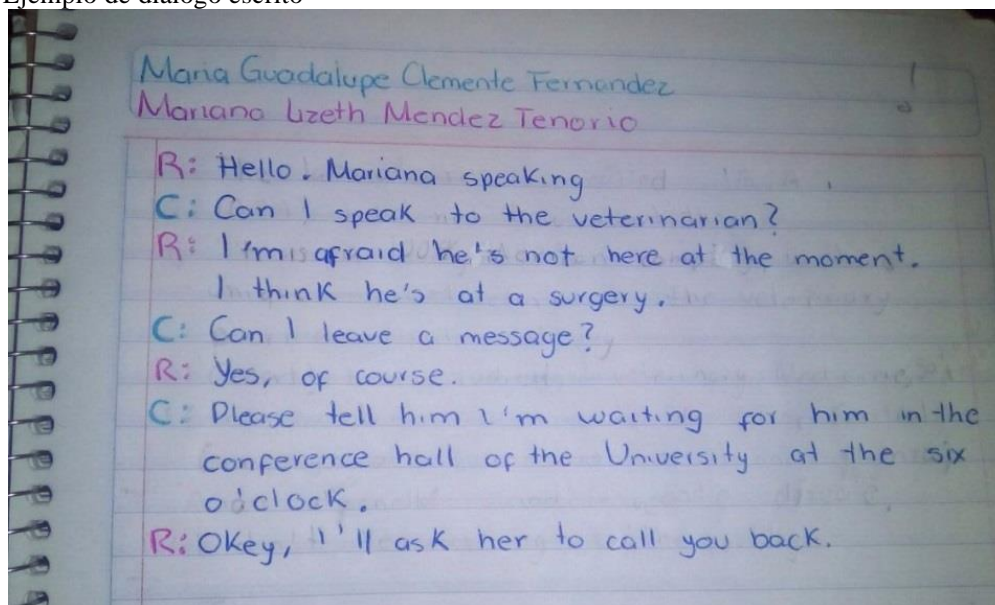 Ejemplo de diálogo escrito
Maria Guadalupe Clemente Fernandez
Mariana Lizeth Mendez Tenorio
R: Hello. Mariana speaking
C: Can I speak to the veterinarian?
R: I'm afraid he's not here at the moment.
I think he's at a surgery.
C: Can I leave a message?
R: Yes, of course.
C: Please tell him I'm waiting for him in the
conference hall of the University at the six
o'clock.
R: Okey, I'll ask her to call you back.